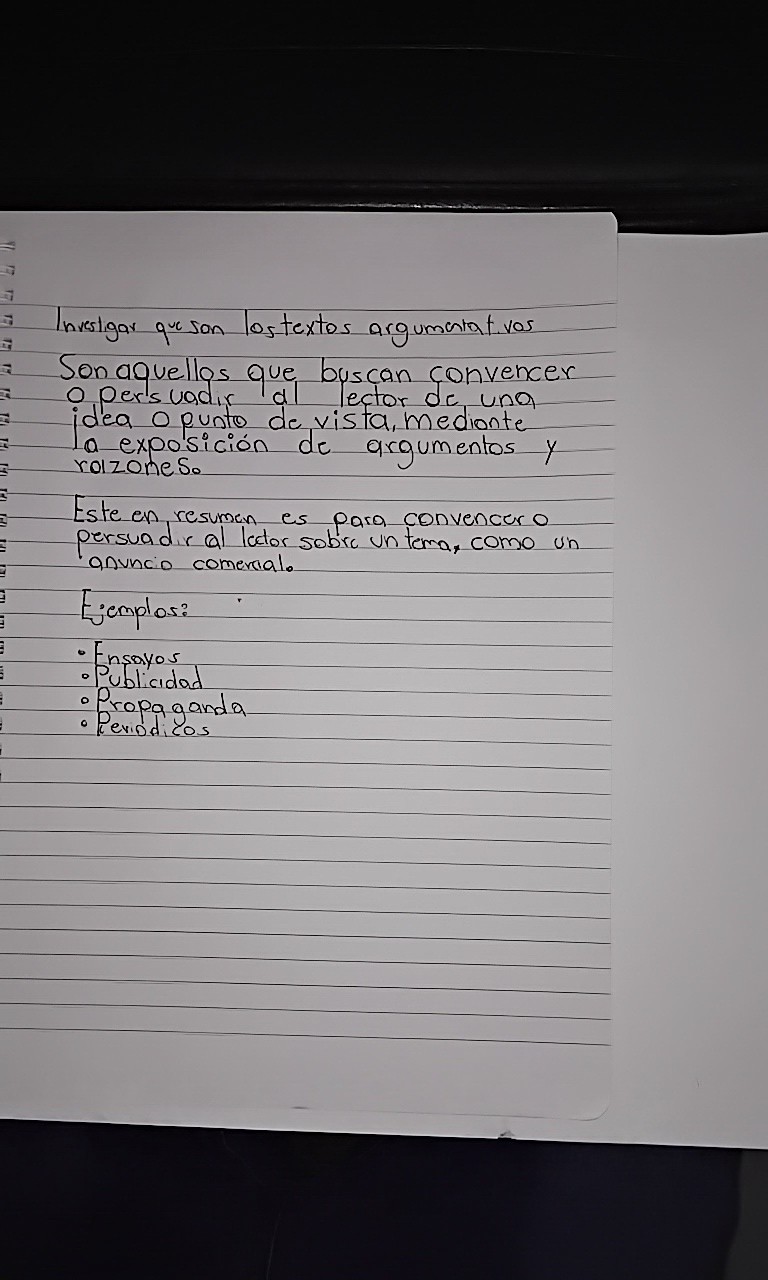 Invesigar que son los textos argumentativos
Son aquellos que buscan convencer
o persuadir al lector de una
idea o punto de vista, mediante
la exposición de argumentos y
raizones.
Este en resumen es para convencer o
persuadir al lector sobre un tema, como un
anuncio comercial.
Ejemplos:
• Ensayos
• Publicidad
• Propaganda
• Periodicos